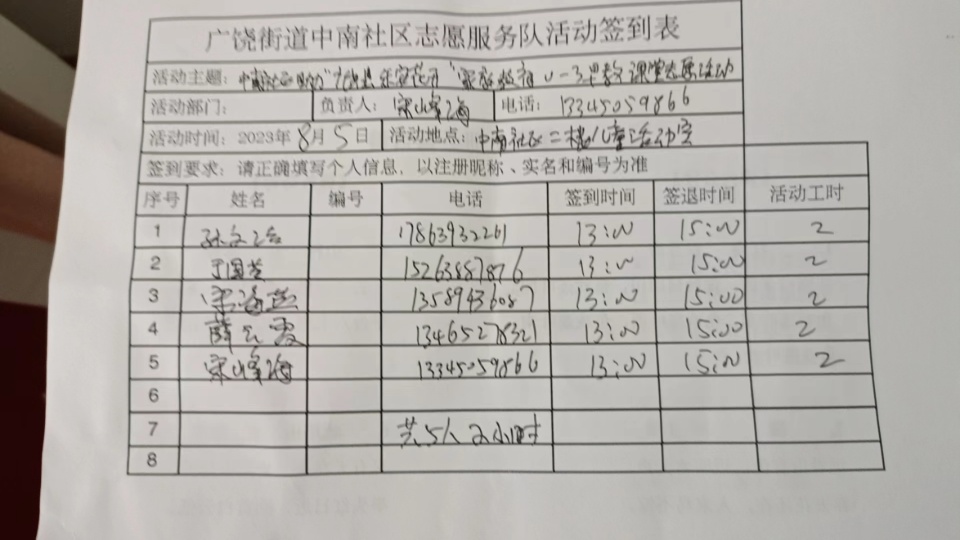 广饶街道中南社区志愿服务队活动签到表
活动主题：中南社区 家庭教育 0-3早教课堂志愿活动
活动部门： 负责人：宋峰海 电话：13345059866
活动时间：2023年8月5日 活动地点：中南社区二楼儿童活动室
签到要求：请正确填写个人信息，以注册昵称、实名和编号为准
序号 姓名 编号 电话 签到时间 签退时间 活动工时
1 孙文 17863932261 13:00 15:00 2
2 于国芝 15263887876 13:00 15:00 2
3 宋海燕 13589436087 13:00 15:00 2
4 薛云霞 13465278321 13:00 15:00 2
5 宋峰海 13345059866 13:00 15:00 2
6
7 共5人2小时
8